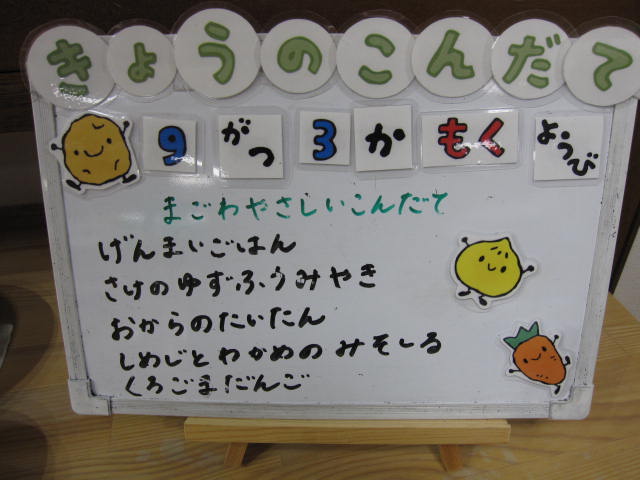 きょうのこんだて
9 がつ 3 か もく ようび
まごわやさしいこんだて
げんまいごはん
さけのゆずふうみやき
おからのたいたん
しめじとわかめのみそしる
くろごまだんご